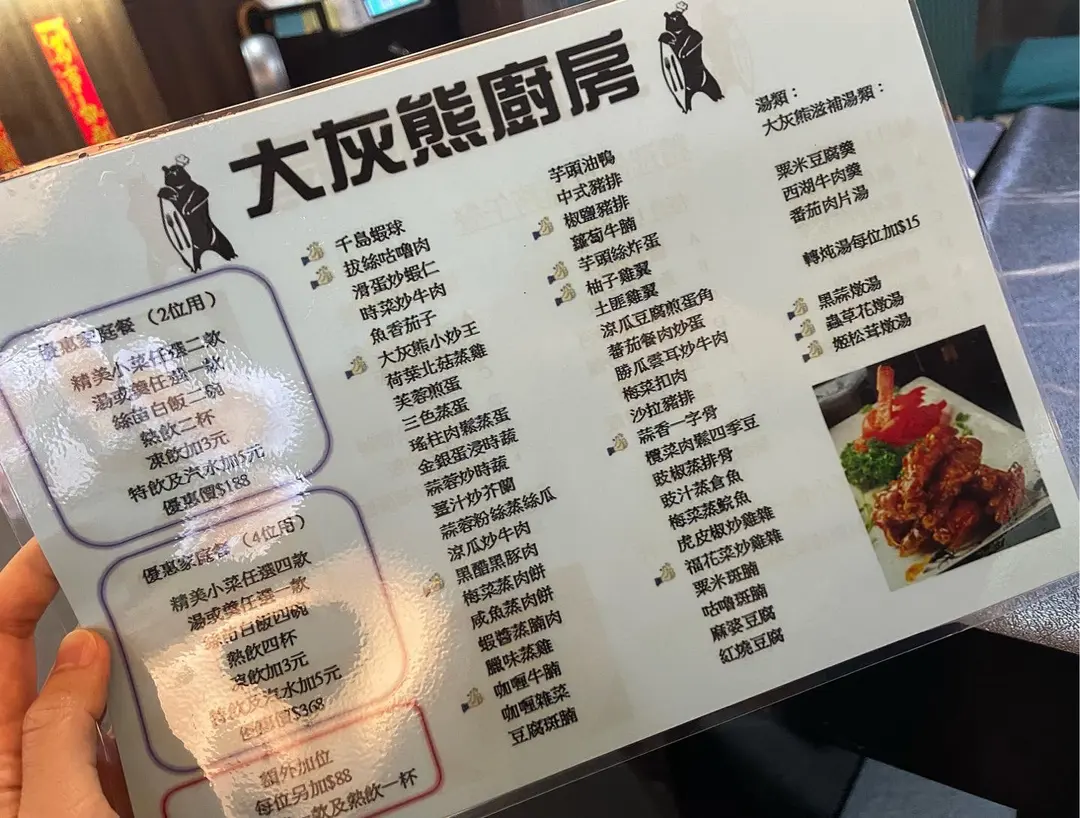 大灰熊廚房
優惠家庭餐（2位用）
精美小菜任選二款
湯或羹任選一款
絲苗白飯二碗
熱飲二杯
凍飲加3元
特飲及汽水加5元
優惠價$188
優惠家庭餐（4位用）
精美小菜任選四款
湯或羹任選一款
絲苗白飯四碗
熱飲四杯
凍飲加3元
特飲及汽水加5元
優惠價$368
額外加位
每位另加$88
款及熱飲一杯
千島蝦球
拔絲咕嚕肉
滑蛋炒蝦仁
時菜炒牛肉
魚香茄子
大灰熊小炒王
荷葉北菇蒸雞
芙蓉煎蛋
三色蒸蛋
瑤柱肉鬆蒸蛋
金銀蛋浸時蔬
蒜蓉炒時蔬
薑汁炒芥蘭
蒜蓉粉絲蒸絲瓜
涼瓜炒牛肉
黑醋黑豚肉
梅菜蒸肉餅
咸魚蒸肉餅
蝦醬蒸腩肉
臘味蒸雞
咖喱牛腩
咖喱雜菜
豆腐斑腩
芋頭油鴨
中式豬排
椒鹽豬排
蘿蔔牛腩
芋頭絲炸蛋
柚子雞翼
土匪雞翼
涼瓜豆腐煎蛋角
蕃茄餐肉炒蛋
勝瓜雲耳炒牛肉
梅菜扣肉
沙拉豬排
蒜香一字骨
欖菜肉鬆四季豆
豉椒蒸排骨
豉汁蒸倉魚
梅菜蒸鯇魚
虎皮椒炒雞雜
福花菜炒雞雜
粟米斑腩
咕嚕斑腩
麻婆豆腐
紅燒豆腐
湯類：
大灰熊滋補湯類：
粟米豆腐羹
西湖牛肉羹
番茄肉片湯
轉炖湯每位加$15
黑蒜燉湯
蟲草花燉湯
姬松茸燉湯